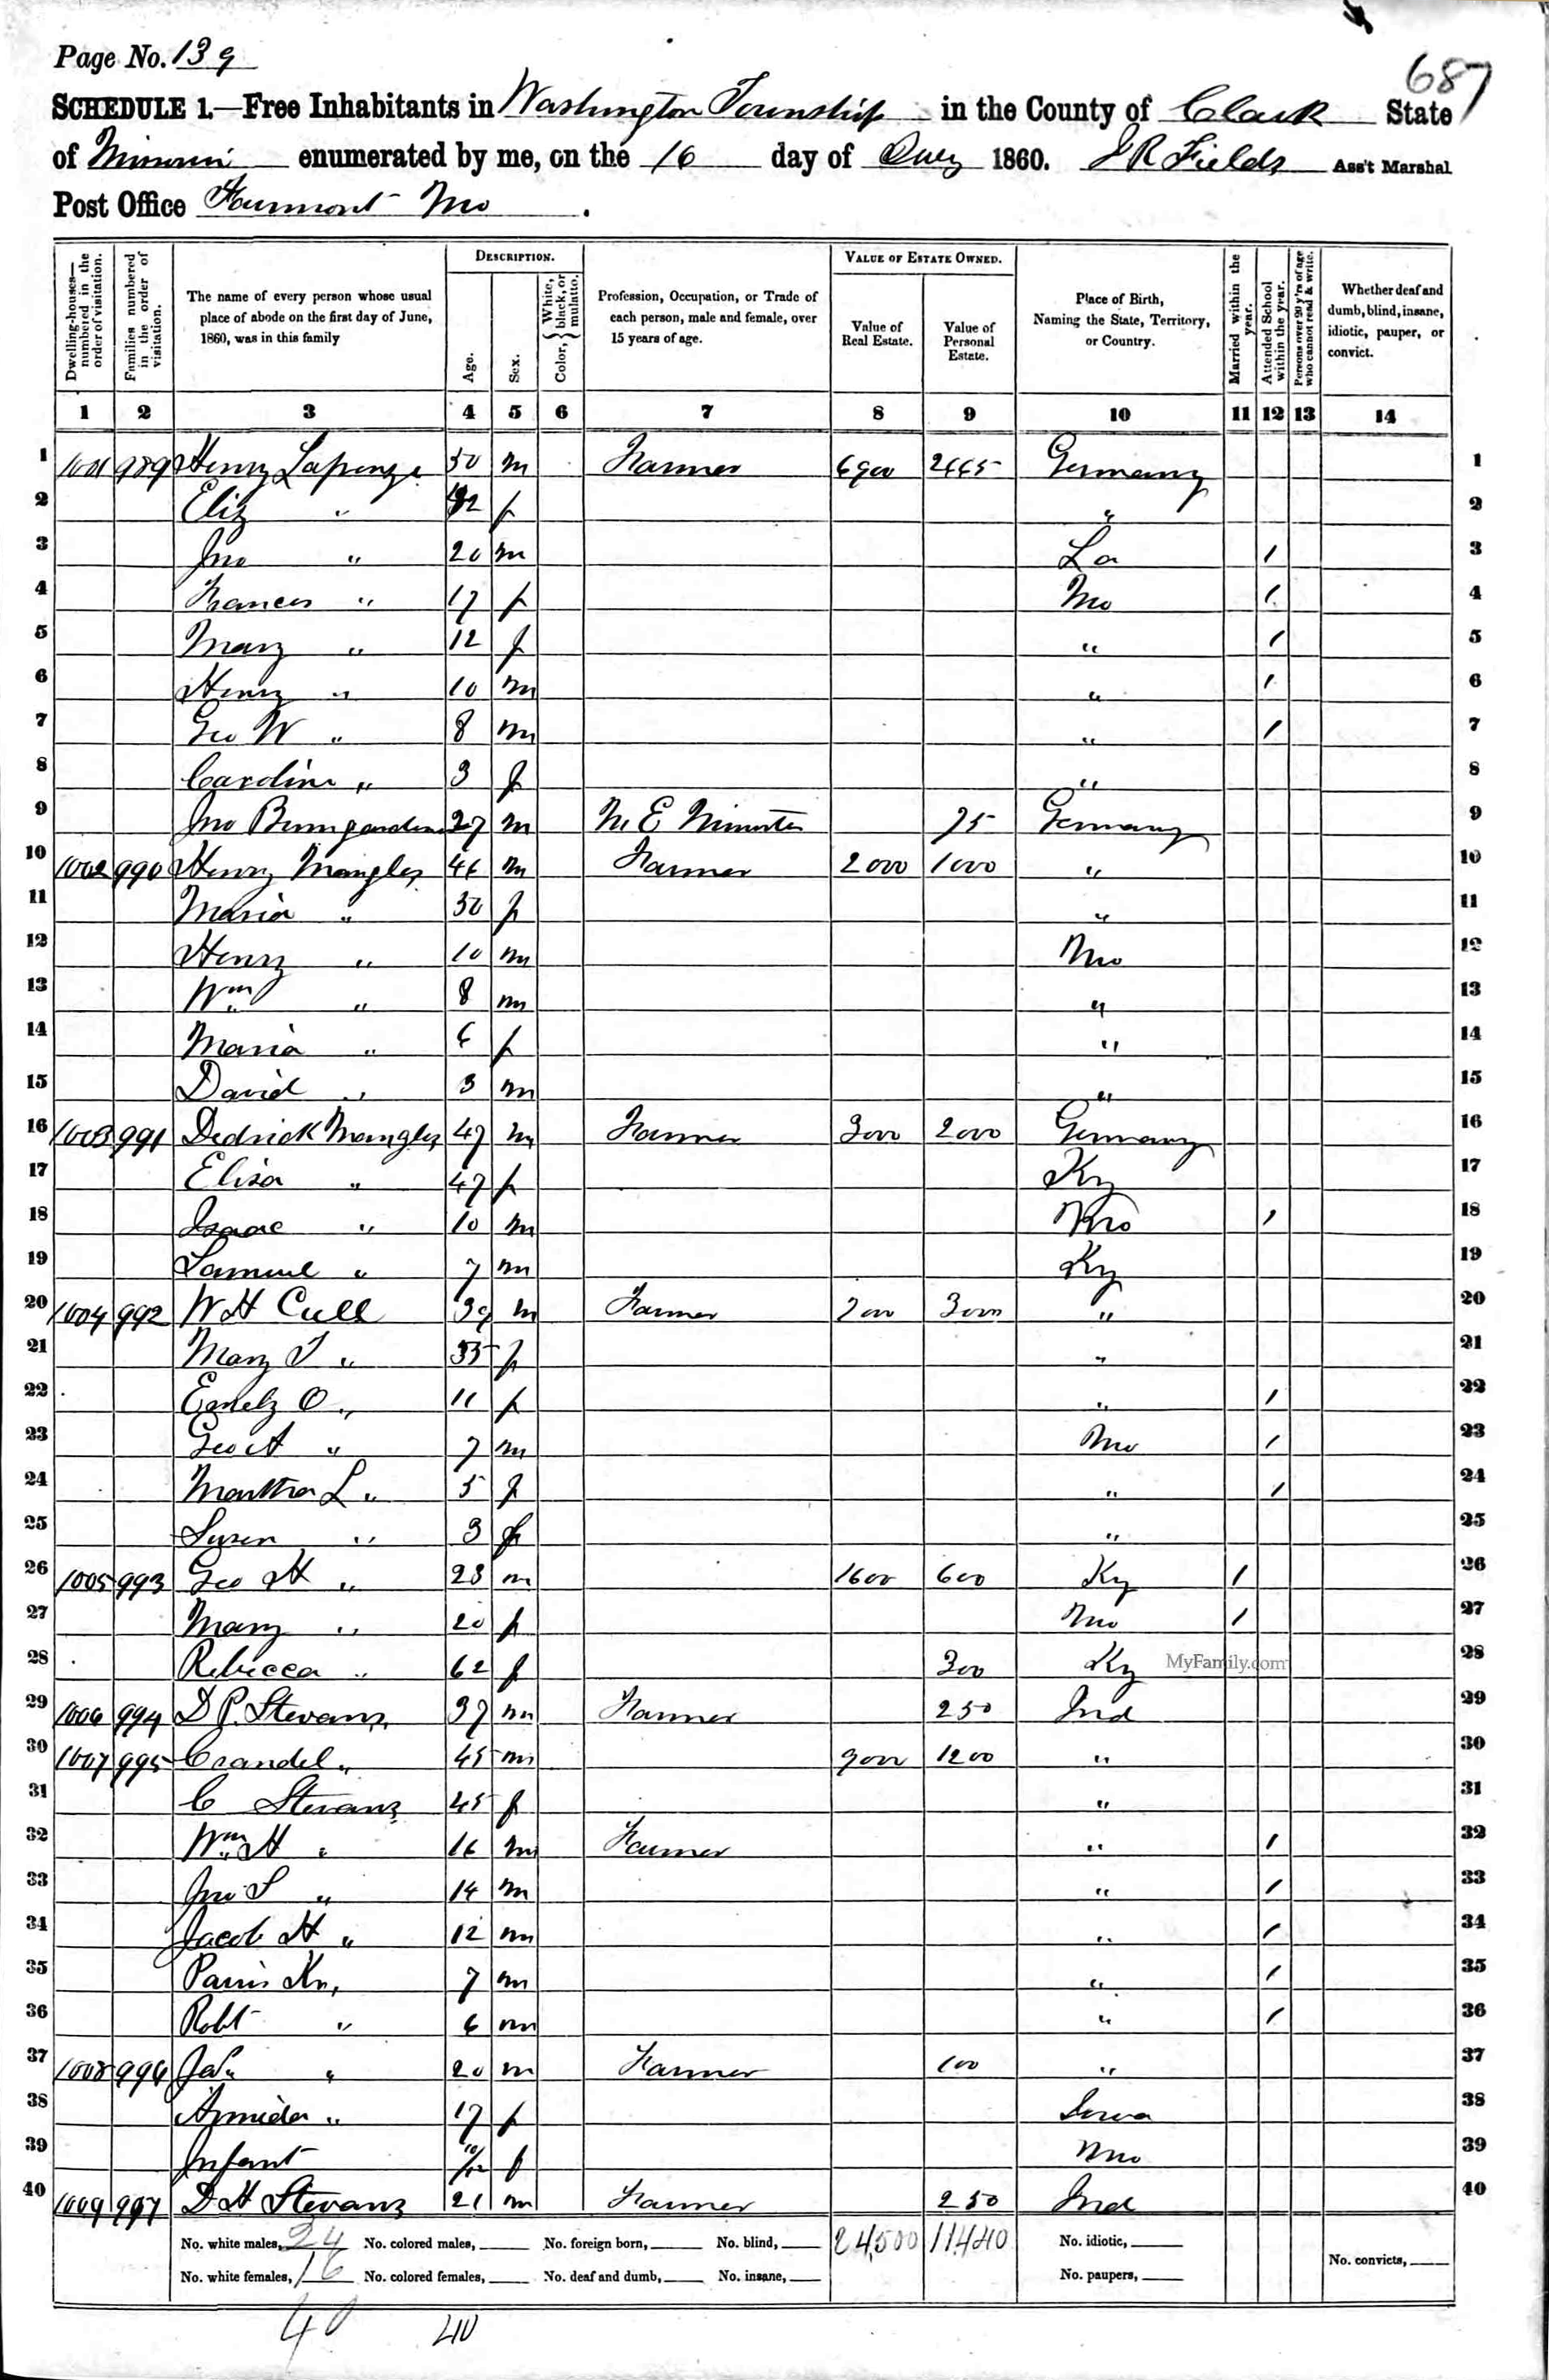 Page No. 139
687
SCHEDULE 1.—Free Inhabitants in Washington Township in the County of Clark State
of Missouri enumerated by me, on the 16 day of July 1860. J R Fields Ass't Marshal
Post Office Fairmont Mo .
Dwelling-houses—numbered in the order of visitation.
Families numbered in the order of visitation.
The name of every person whose usual place of abode on the first day of June, 1860, was in this family
DESCRIPTION.
Age.
Sex.
Color, { White, black, or mulatto.
Profession, Occupation, or Trade of each person, male and female, over 15 years of age.
VALUE OF ESTATE OWNED.
Value of Real Estate.
Value of Personal Estate.
Place of Birth, Naming the State, Territory, or Country.
Married within the year.
Attended School within the year.
Persons over 20 y'rs of age who cannot read & write.
Whether deaf and dumb, blind, insane, idiotic, pauper, or convict.
1 2 3 4 5 6 7 8 9 10 11 12 13 14
1 1001 989 Henry 50 m Farmer 6900 2465 Germany 1
2 Eliz " 42 f " 2
3 Jno " 20 m La / 3
4 Frances " 17 f Mo / 4
5 Mary " 12 f " / 5
6 Henry " 10 m " / 6
7 Geo W " 8 m " / 7
8 Caroline " 3 f " 8
9 Jno Bumgardner 27 m M E Minister 75 Germany 9
10 1002 990 Henry Mangles 46 m Farmer 2000 1000 " 10
11 Maria " 30 f " 11
12 Henry " 10 m Mo 12
13 Wm " 8 m " 13
14 Maria " 6 f " 14
15 David " 3 m " 15
16 1003 991 Dedrick Mangles 47 m Farmer 3000 2000 Germany 16
17 Eliza " 47 f Ky 17
18 Isaac " 10 m Mo / 18
19 Samuel " 7 m Ky 19
20 1004 992 W H Cull 39 m Farmer 2000 3000 " 20
21 Mary T " 35 f " 21
22 O " 11 f " / 22
23 Geo A " 7 m Mo / 23
24 Martha L " 5 f " / 24
25 Susen " 3 f " 25
26 1005 993 Geo H " 23 m 1600 600 Ky / 26
27 Mary " 20 f Mo / 27
28 Rebecca " 62 f 300 Ky MyFamily.com 28
29 1006 994 D P. Stevans 37 m Farmer 250 Ind 29
30 1007 995 Crandel " 45 m 9000 1200 " 30
31 C Stevans 45 f " 31
32 Wm H " 16 m Farmer " / 32
33 Jno S " 14 m " / 33
34 Jacob H " 12 m " / 34
35 Parris K " 7 m " / 35
36 Robt " 6 m " / 36
37 1008 996 Jas " 20 m Farmer 100 " 37
38 Armida " 17 f Iowa 38
39 Infant 10/12 f Mo 39
40 1009 997 D H Stevans 21 m Farmer 250 Ind 40
No. white males, 24 No. colored males, No. foreign born, No. blind, 24,500 11440 No. idiotic,
No. white females, 16 No. colored females, No. deaf and dumb, No. insane, No. paupers, No. convicts,
40 40